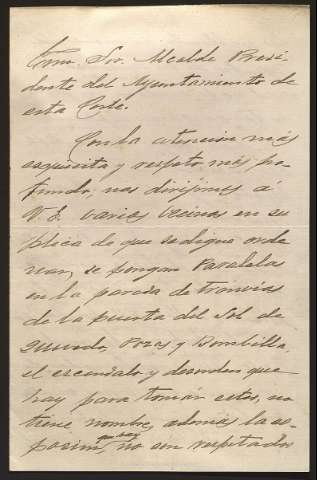 Excmo. Sor. Alcalde Presi-
dente del Ayuntamiento de
esta Corte.
Con la atención más
esquisita y respeto más pro-
fundo, nos dirijimos á
V.E. varios vecinos en su
plica de que se digne orde
nar, se pongan Paralelas
en la parada de tranvías
de la puerta del Sol de
Quevedo, Pozas y Bombilla,
el escandalo y desorden que
hay para tomar estos, no
tiene nombre, además la es-
posición, que hay no son respetados